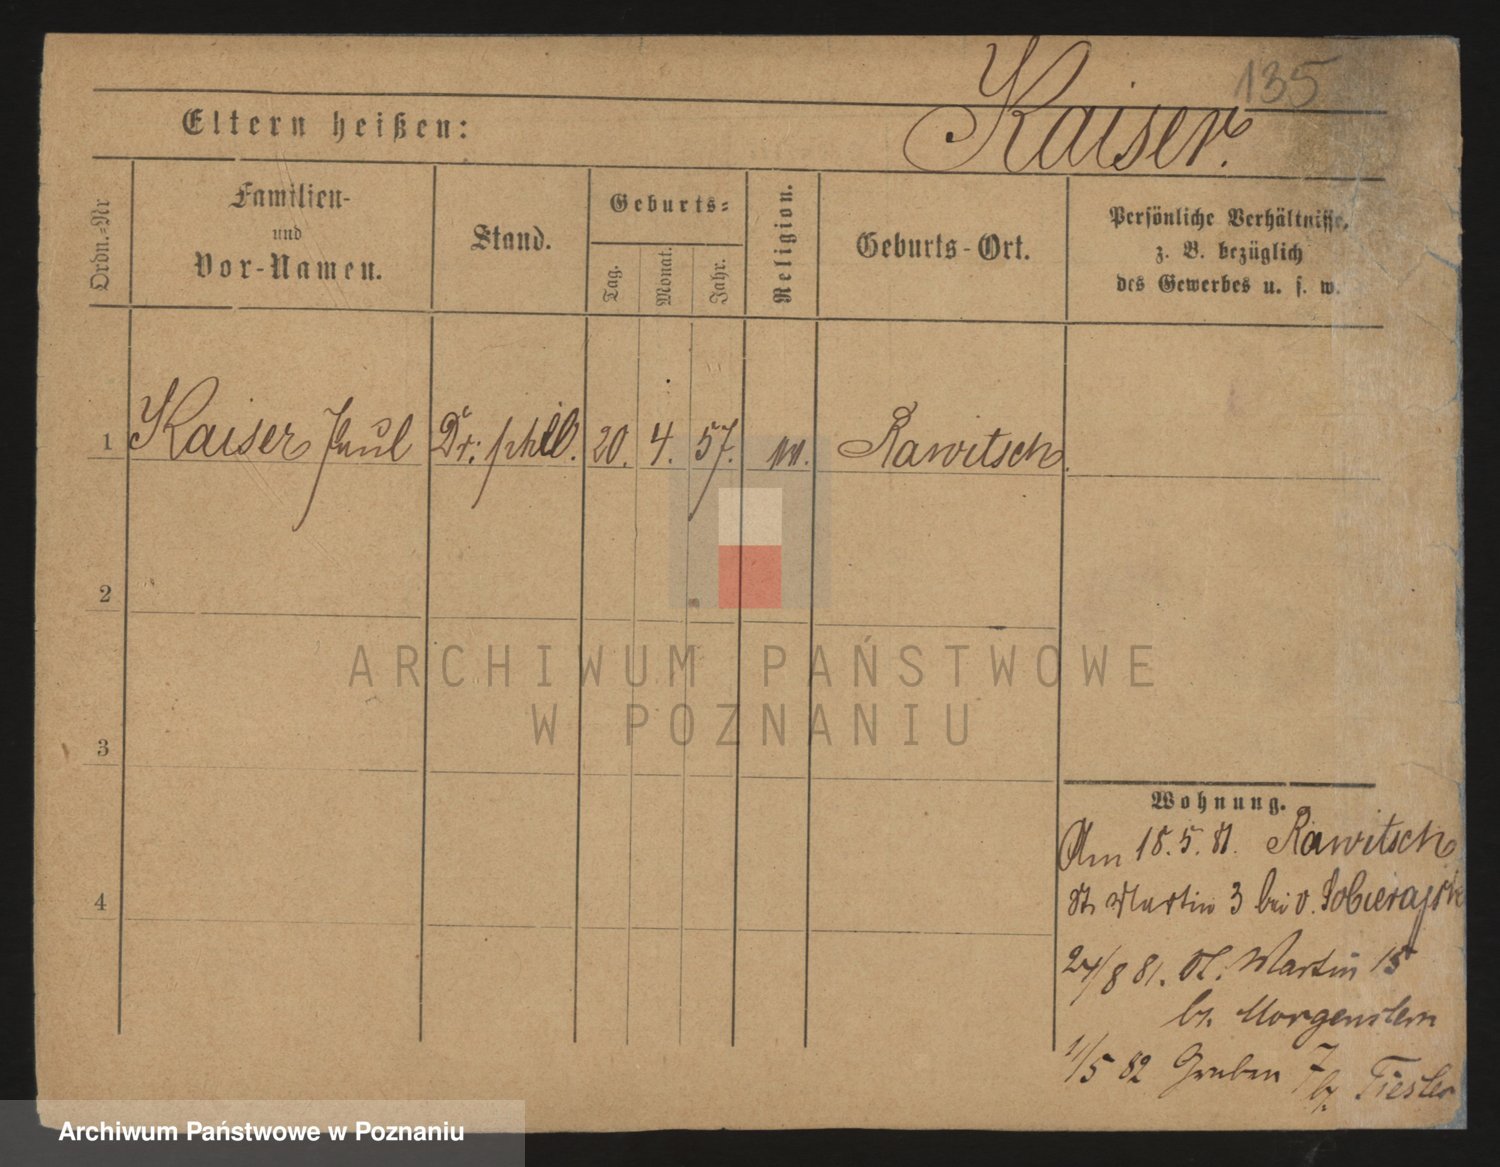 135
Kaiser.
Eltern heißen:
Ordn.-Nr
Familien-
und
Vor-Namen.
Stand.
Geburts-
Tag.
Monat.
Jahr.
Religion.
Geburts-Ort.
Persönliche Verhältnisse,
z. B. bezüglich
des Gewerbes u. s. w.
1 Kaiser Paul Dr. phil. 20. 4. 57. Rawitsch.
2
3
4
ARCHIWUM PAŃSTWOWE
W POZNANIU
Wohnung.
Am 18.5.81. Rawitsch
St Martin 3 bei v.
24/8 81. St. Martin 15
bz. Morgenstern
1/5 82 Graben 7 bz. Fiesler
Archiwum Państwowe w Poznaniu